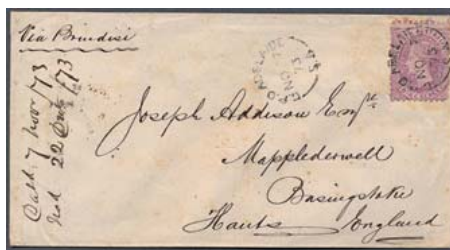 Via Brindisi
Dated 7 Nov /73
Recd 22 Dec /73
G.P.O ADELAIDE S.A
NO 7
73
Joseph Addison Esqre
Mapplederwell
Basingstoke
Hants England